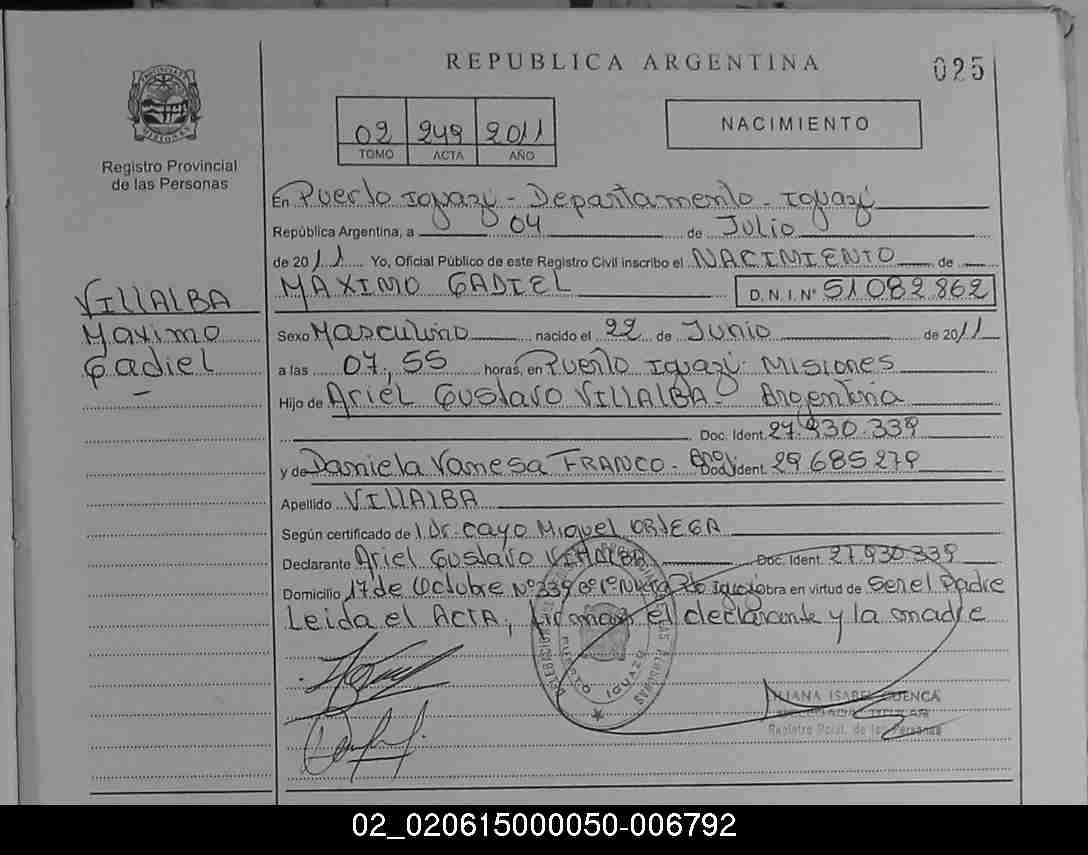 REPUBLICA ARGENTINA
025
PROVINCIA DE MISIONES
Registro Provincial
de las Personas
02 249 2011
TOMO ACTA AÑO
NACIMIENTO
En Puerto Iguazú - Departamento - Iguazú
República Argentina, a 04 de Julio
de 2011 Yo, Oficial Público de este Registro Civil inscribo el NACIMIENTO de
MAXIMO GADIEL D. N. I. Nº 51 082 862
VILLALBA
Maximo
Gadiel
Sexo Masculino nacido el 22 de Junio de 2011
a las 07,55 horas, en Puerto Iguazú - Misiones
Hijo de Ariel Gustavo VILLALBA - Argentina
Doc. Ident. 27.930.339
y de Daniela Vanesa FRANCO - Doc. Ident. 29.685279
Apellido VILLALBA
Según certificado de Dr. Cayo Miguel ORTEGA
Declarante Ariel Gustavo VILLALBA Doc. Ident. 27.930.339
Domicilio 17 de Octubre Nº 339 Obra en virtud de Ser el Padre
Leida el ACTA, firman el declarante y la madre
ISABEL CUENCA
Registro Pcial. de las Personas
02_020615000050-006792